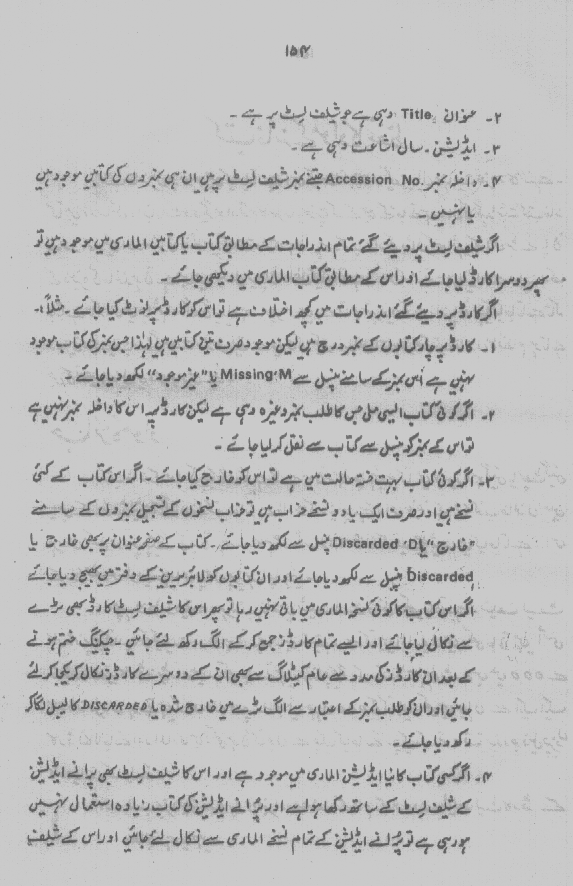 ۱۵۴
۲۔ عنوان Title وہی ہے جو شیلف لسٹ پر ہے ۔
۳۔ ایڈیشن ۔ سال اشاعت وہی ہے ۔
۴۔ داخلہ نمبر Accession No. جتنے نمبر شیلف لسٹ پر ہیں ان ہی نمبروں کی کتابیں موجود ہیں
یا نہیں ۔
اگر شیلف لسٹ پر دیئے گئے تمام اندراجات کے مطابق کتاب یا کتابیں الماری میں موجود ہیں تو
پھر دوسرا کارڈ لیا جائے اور اس کے مطابق کتاب الماری میں دیکھی جائے ۔
اگر کارڈ پر دیئے گئے اندراجات میں کچھ اختلاف ہے تو اس کو کارڈ پر نوٹ کیا جائے ۔ مثلاً :۔
۱۔ کارڈ پر چار کتابوں کے نمبر درج ہیں لیکن موجود صرف تین کتابیں ہیں لہٰذا جس نمبر کی کتاب موجود
نہیں ہے اُس نمبر کے سامنے پنسل سے Missing 'M یا "غیر موجود" لکھ دیا جائے ۔
۲۔ اگر کوئی کتاب ایسی ملی جس کا طلب نمبر وغیرہ وہی ہے لیکن کارڈ پر اس کا داخلہ نمبر نہیں ہے
تو اس کے نمبر کو پنسل سے کتاب سے نقل کر لیا جائے ۔
۳۔ اگر کوئی کتاب بہت خستہ حالت میں ہے تو اس کو خارج کیا جائے ۔ اگر اس کتاب کے کئی
نسخے ہیں اور صرف ایک یا دو نسخے خراب ہیں تو خراب نسخوں کے تسجیل نمبروں کے سامنے
"خارج" یا Discarded 'D پنسل سے لکھ دیا جائے ۔ کتاب کے صفحہ عنوان پر بھی خارج یا
Discarded پنسل سے لکھ دیا جائے اور ان کتابوں کو لائبریرین کے دفتر میں بھیج دیا جائے
اگر اس کتاب کا کوئی نسخہ الماری میں باقی نہیں رہا تو پھر اس کا شیلف لسٹ کارڈ بھی ٹرے
سے نکال لیا جائے اور ایسے تمام کارڈز جمع کر کے الگ رکھ لئے جائیں ۔ چیکنگ ختم ہونے
کے بعد ان کارڈز کی مدد سے عام کیٹلاگ سے بھی ان کے دوسرے کارڈز نکال کر یکجا کر لئے
جائیں اور ان کو طلب نمبر کے اعتبار سے الگ ٹرے میں خارج شدہ یا DISCARDED کا لیبل لگا کر
رکھ دیا جائے ۔
۴۔ اگر کسی کتاب کا نیا ایڈیشن الماری میں موجود ہے اور اس کا شیلف لسٹ بھی پرانے ایڈیشن
کے شیلف لسٹ کے ساتھ رکھا ہوا ہے اور پُرانے ایڈیشن کی کتاب زیادہ استعمال نہیں
ہو رہی ہے تو پُرانے ایڈیشن کے تمام نسخے الماری سے نکال لئے جائیں اور اس کے شیلف